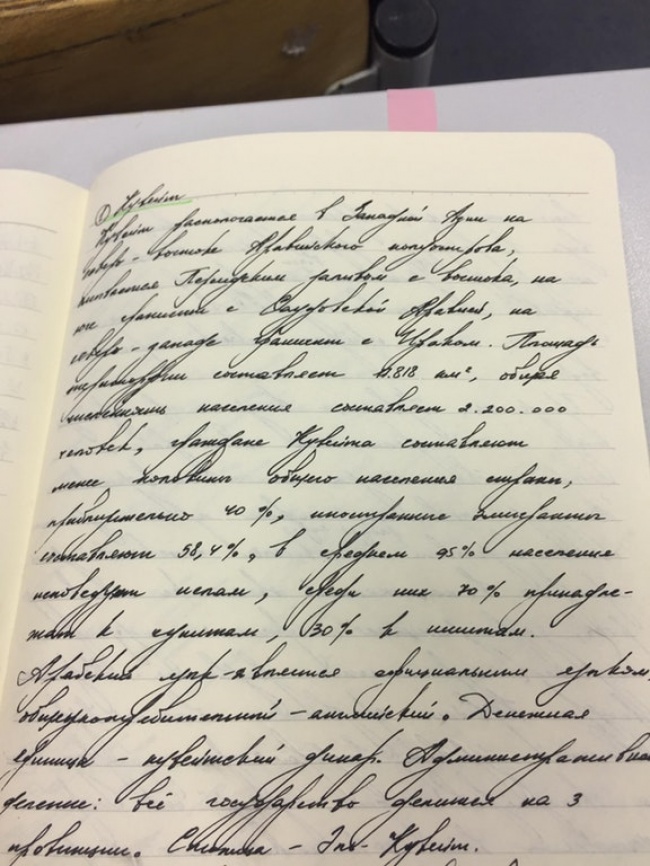 ① Кувейт
Кувейт располагается в Западной Азии на
северо-востоке Аравийского полуострова,
омывается Персидским заливом с востока, на
юге граничит с Саудовской Аравией, на
северо-западе граничит с Ираком. Площадь
территории составляет 17.818 км², общая
численность населения составляет 2.200.000
человек, граждане Кувейта составляют
менее половины общего населения страны,
приблизительно 40%, иностранные эмигранты
составляют 58,4%, в среднем 95% населения
исповедуют ислам, среди них 70% принадле-
жат к суннитам, 30% к шиитам.
Арабский язык является официальным языком,
общеупотребительной – английский. Денежная
единица – кувейтский динар. Административное
деление: всё государство делится на 3
провинции. Столица – Эль-Кувейт.